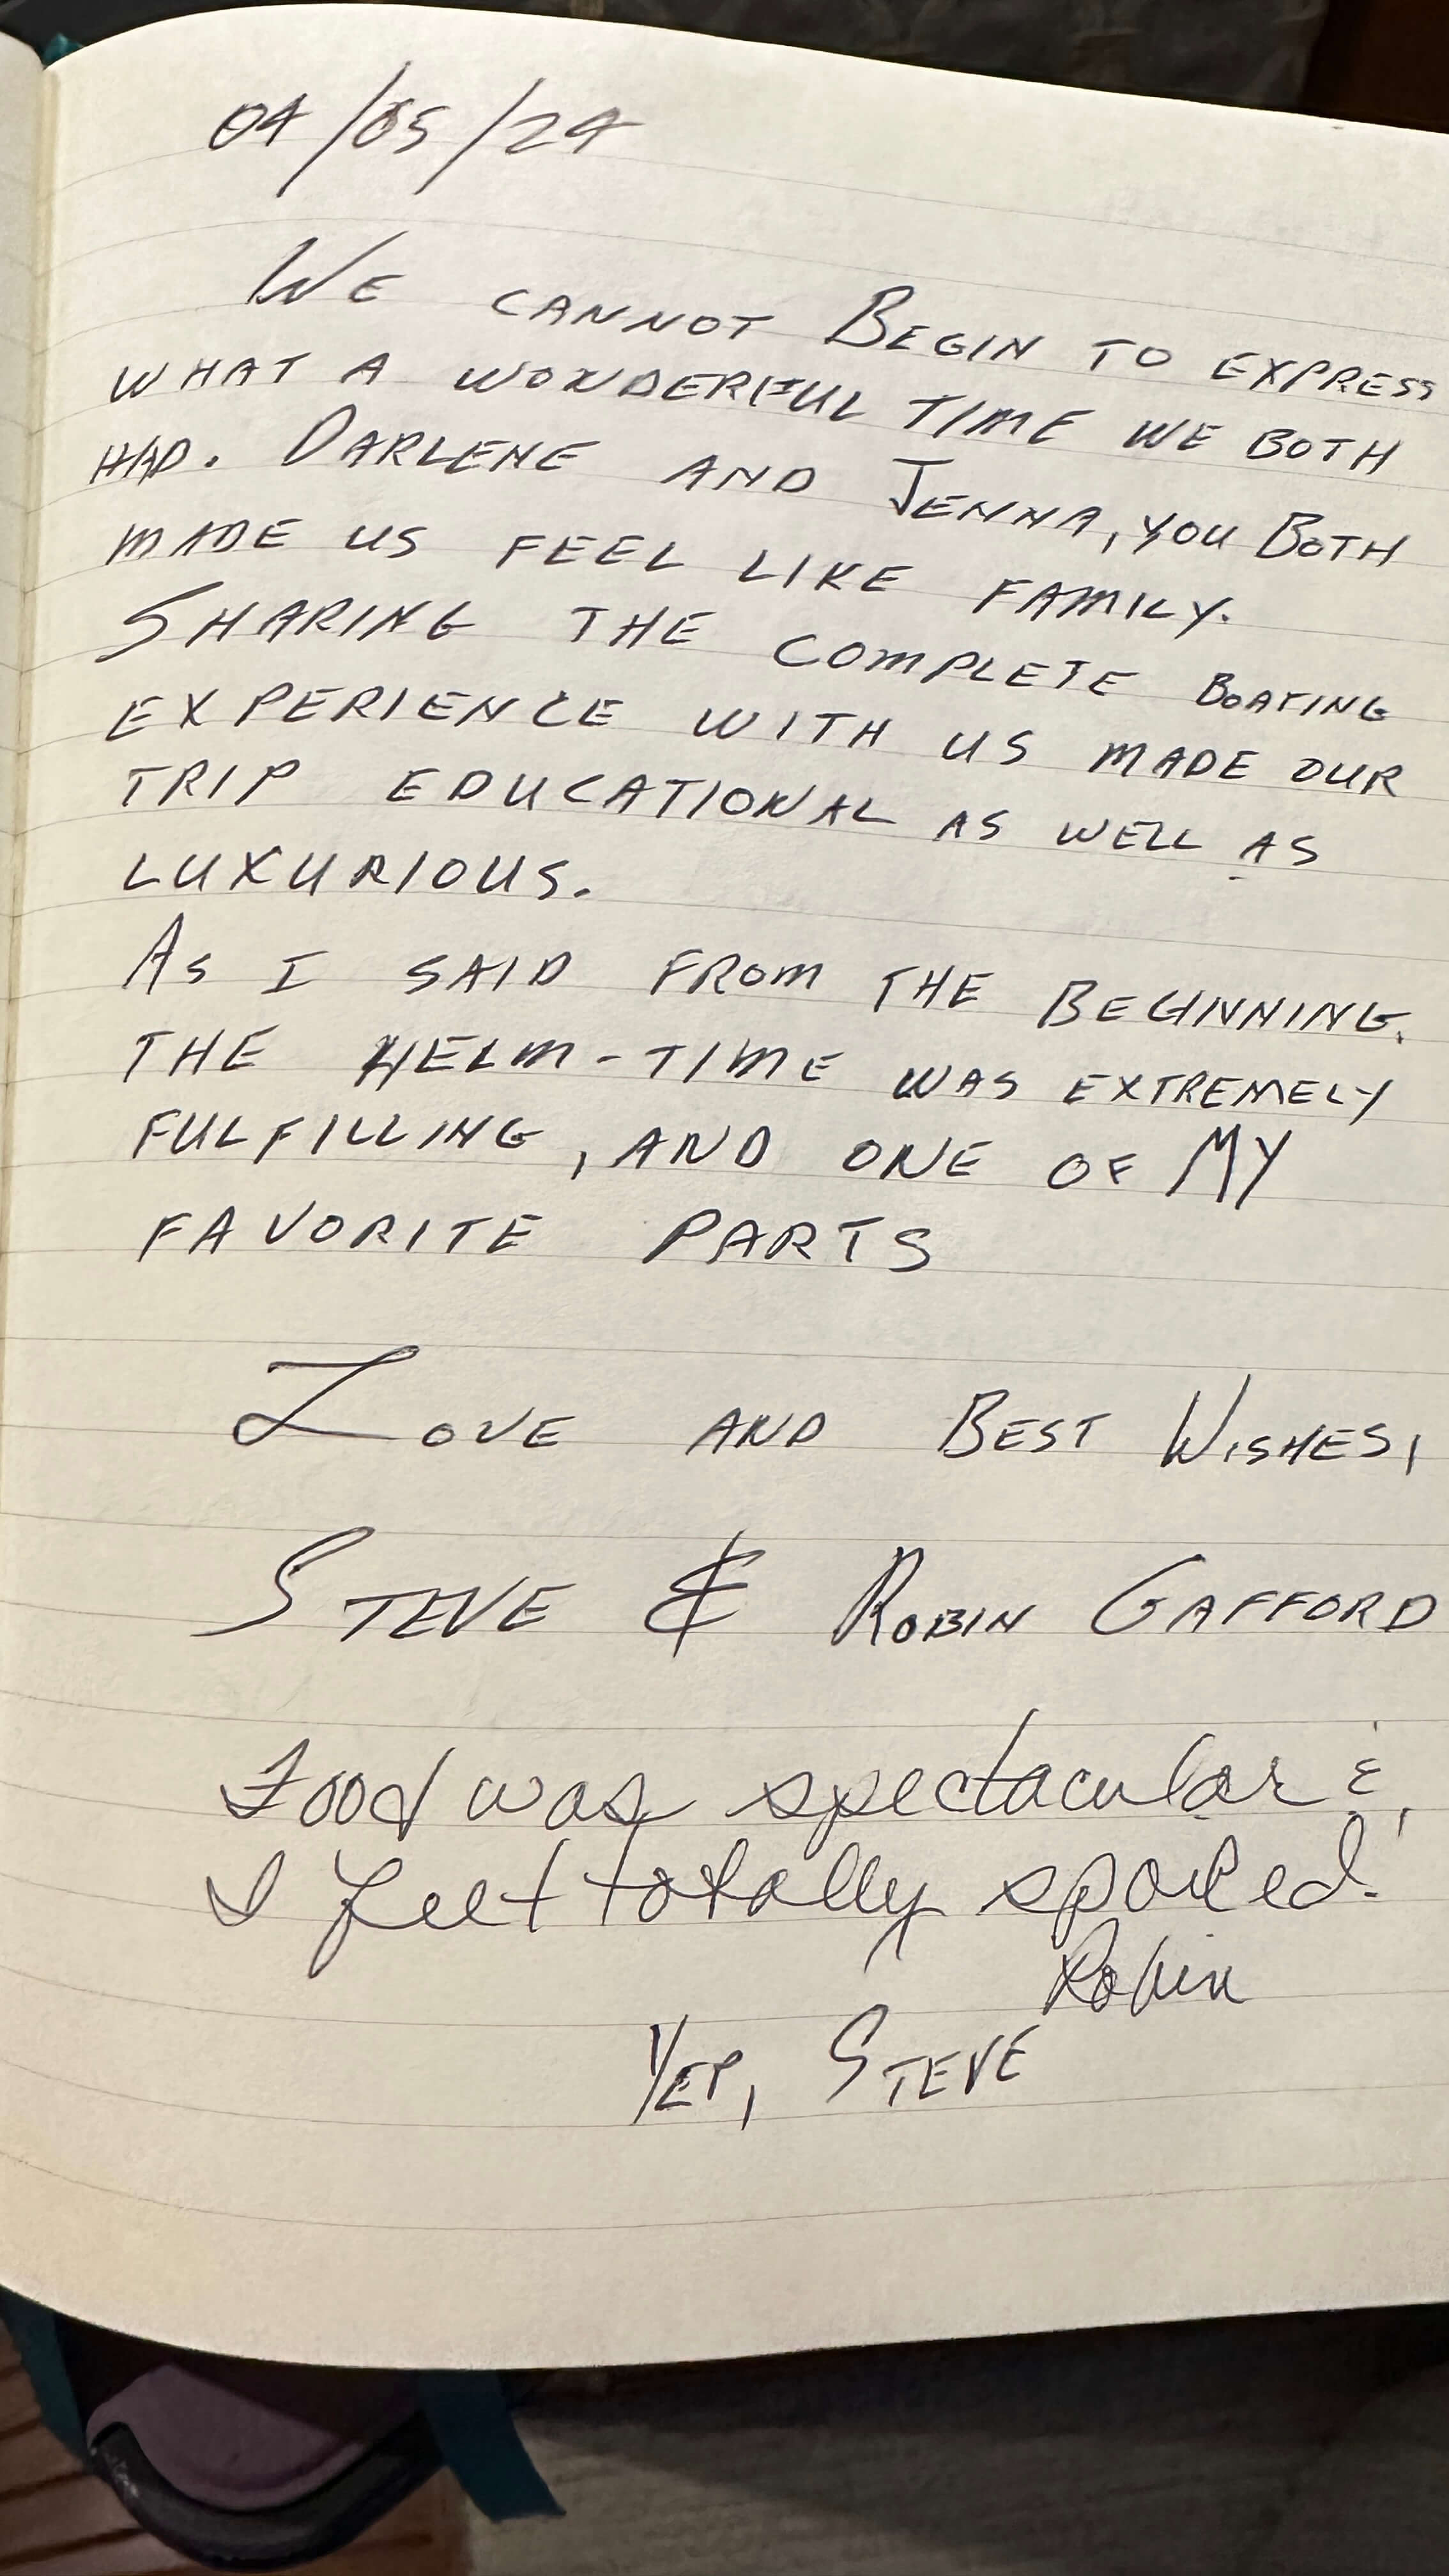 04/05/24
WE CANNOT BEGIN TO EXPRESS
WHAT A WONDERFUL TIME WE BOTH
HAD. DARLENE AND JENNA, YOU BOTH
MADE US FEEL LIKE FAMILY.
SHARING THE COMPLETE BOATING
EXPERIENCE WITH US MADE OUR
TRIP EDUCATIONAL AS WELL AS
LUXURIOUS.
AS I SAID FROM THE BEGINNING,
THE HELM-TIME WAS EXTREMELY
FULFILLING, AND ONE OF MY
FAVORITE PARTS
LOVE AND BEST WISHES,
STEVE & ROBIN GAFFORD
Food was spectacular &
I feel totally spoiled!
Robin
YEP, STEVE